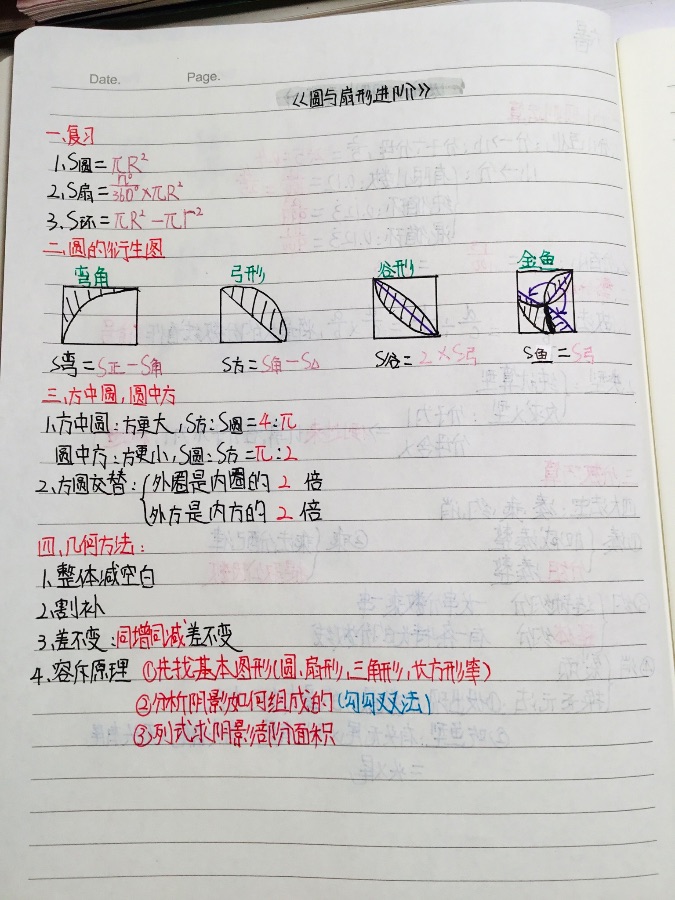 Date. Page.
《圆与扇形进阶》
一.复习
1.S圆=πR²
2.S扇=n°/360°×πR²
3.S环=πR²-πr²
二.圆的衍生图
弯角 弓形 谷形 金鱼
S弯=S正-S角 S方=S角-S△ S谷=2×S弓 S鱼=S弓
三.方中圆,圆中方
1.方中圆:方更大,S方:S圆=4:π
圆中方:方更小,S圆:S方=π:2
2.方圆交替:{外圈是内圈的2倍
外方是内方的2倍
四.几何方法:
1.整体减空白
2.割补
3.差不变:同增同减差不变
4.容斥原理 ①先找基本图形(圆,扇形,三角形,长方形等)
②分析阴影如何组成的(勾勾叉叉法)
③列式求阴影部分面积